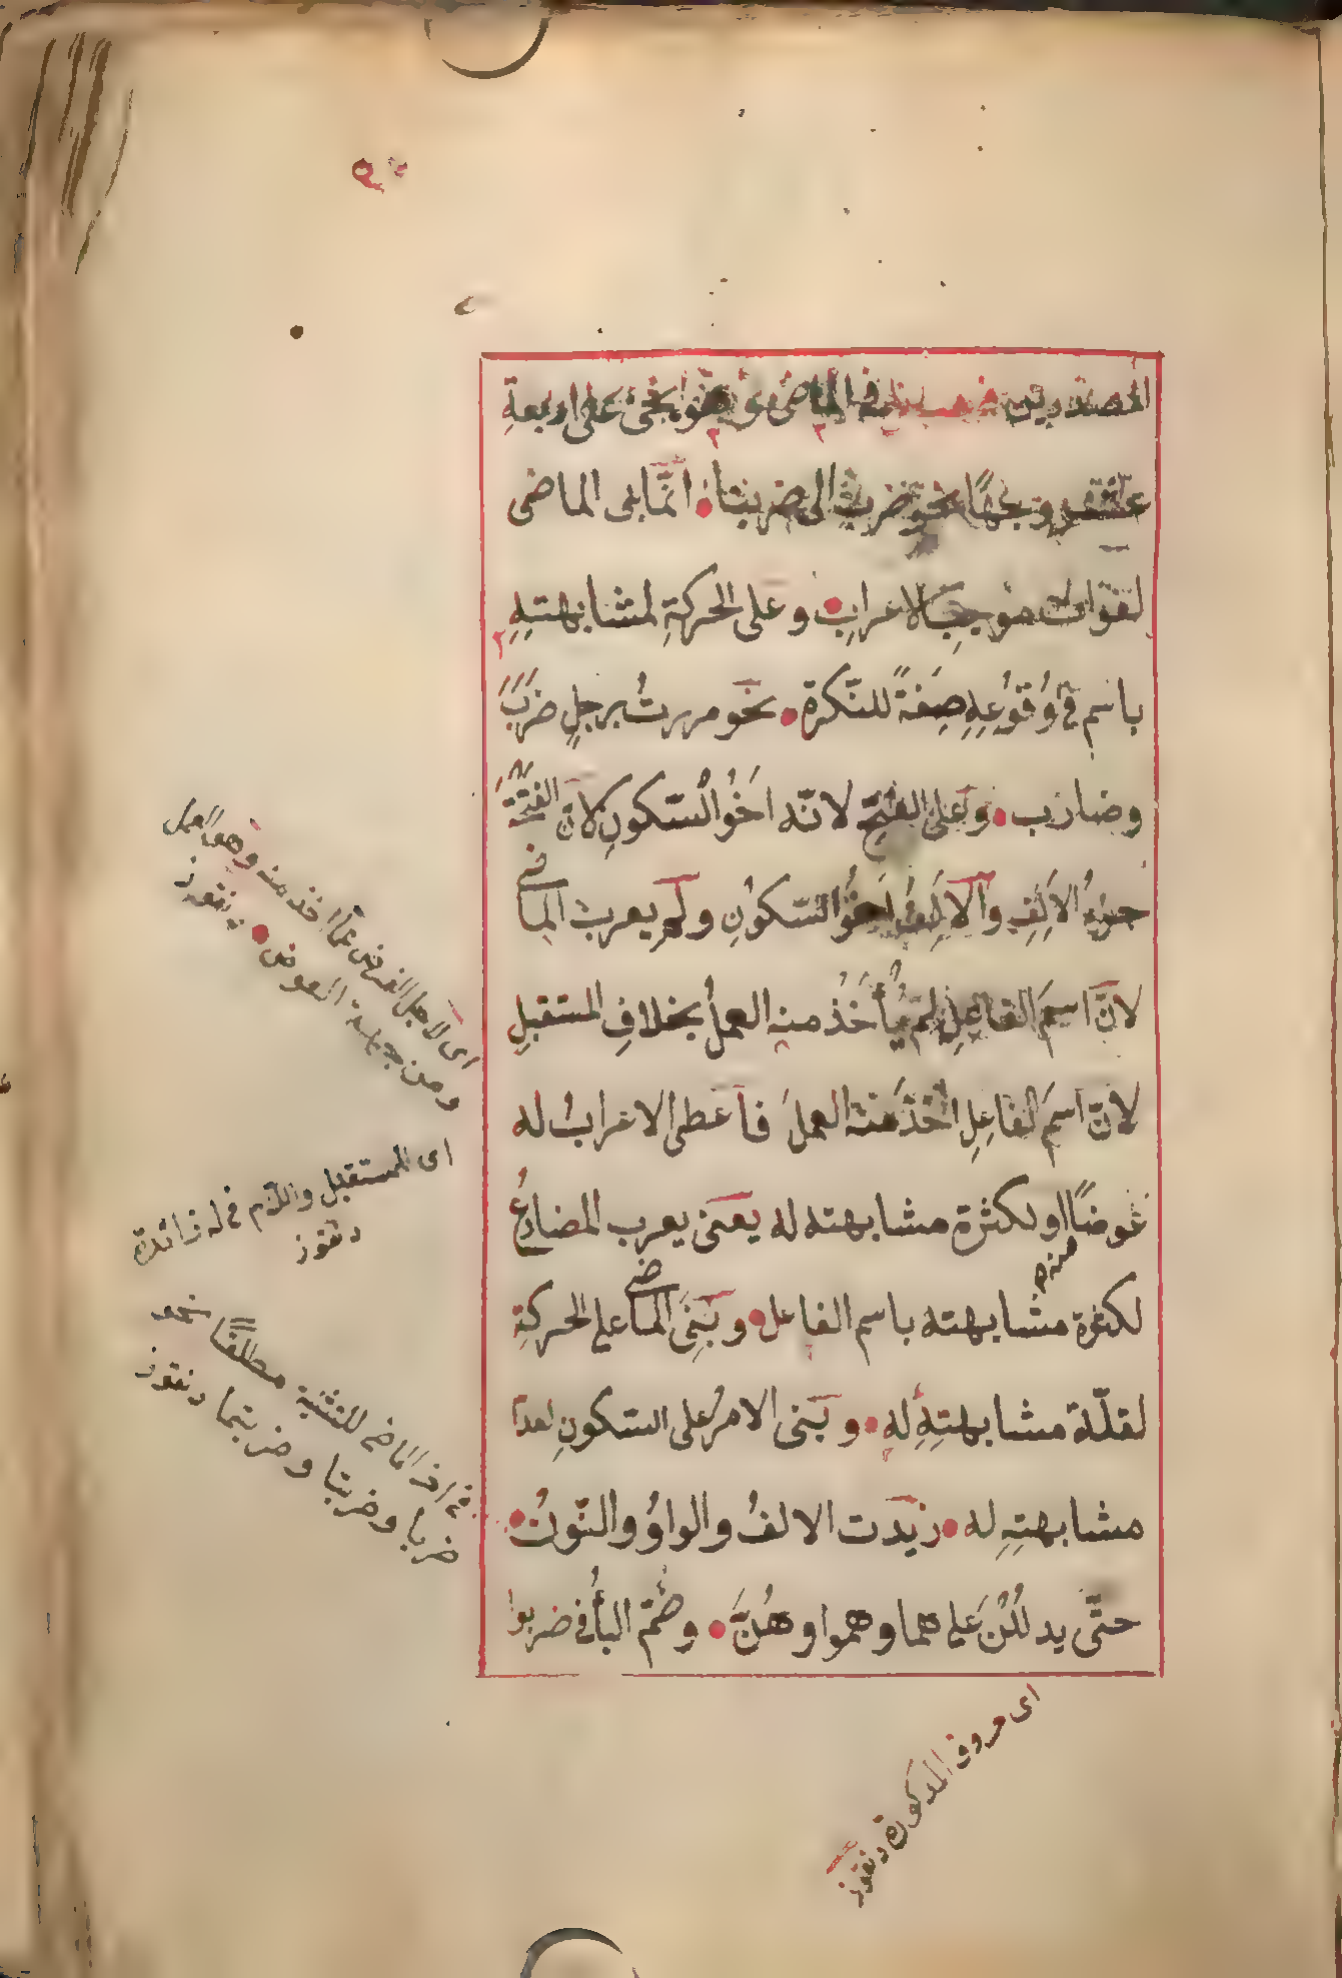 المصدرين فصل فى الماضى وهو يجئ على اربعة
عشر وجهًا نحو ضرب الى ضربنا انّما بنى الماضى
لفوات موجب الاعرابِ وعلى الحركةِ لمشابهتهِ
باسم فى وُقوُعِهِ صِفةً للنّكرة نحو مررتُ برجلٍ ضَرَبَ
وضارب وعلى الفتحِ لانّه اَخُو السّكونِ لانّ الفتحةَ
جزءُ الاَلِفِ والاَلِفُ اَخُو السّكوُنِ ولم يعرب الماضى
لانّ اسمَ الفاعلِ لم يُأخَذ منه العملُ بخلافِ المستقبلِ
لانّ اسمَ الفاعِلِ اُخذ منه العملَ فاعطى الاعرابُ له
عوضًا او لكثرة مشابهته له يعنى يعرب المضارعُ
لكثرة مشابهته باسم الفاعل وبَنِىَ الماضى على الحركةِ
منه
لقلّة مشابهتِهِ له وبَنى الامرُ على السّكونِ لعدم
مشابهتِهِ له زيدت الالفُ والواوُ والنّونُ
حتّى يدللنَ على هما وهموا وهُنَّ وضُمّ الباُ فى ضربوا
اى لاجل العرض عمّا اخذ منه وهو العمل
ومن جهة العوض دنقوز
اى المستقبل واللام فى له زائدة
دنقوز
فى اخر الماضى للتثنية مطلقًا نحو
ضربا وضربتا وضربتما دنقوز
اى حروف المذكورة دنقوز